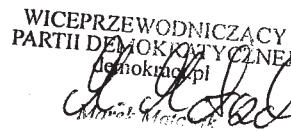 WICEPRZEWODNICZĄCY
PARTII DEMOKRATYCZNEJ
demokraci.pl
Marek